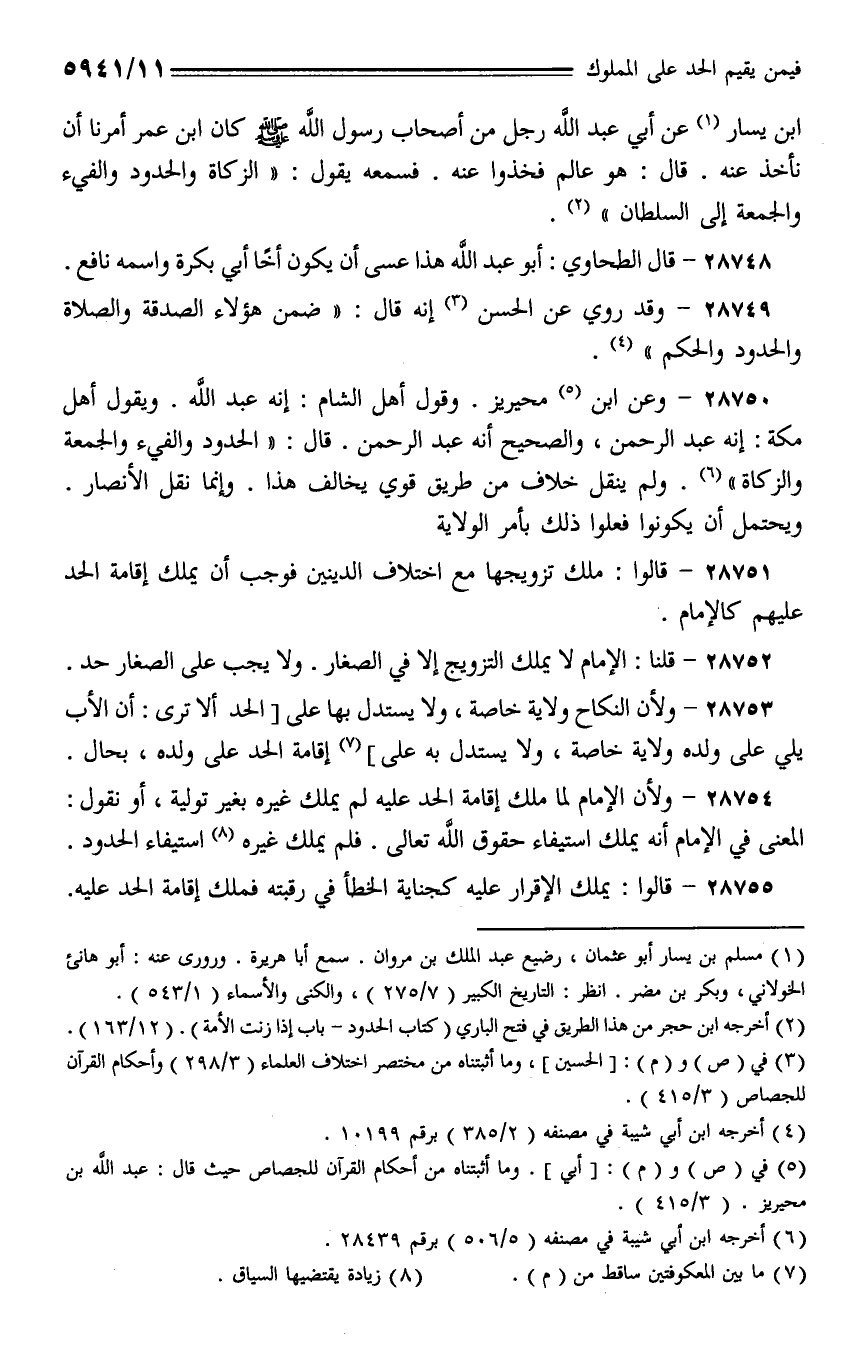 فيمن يقيم الحد على المملوك ٥٩٤١/١١
ابن يسار (١) عن أبي عبد اللَّه رجل من أصحاب رسول اللَّه ﷺ كان ابن عمر أمرنا أن
نأخذ عنه . قال : هو عالم فخذوا عنه . فسمعه يقول : « الزكاة والحدود والفيء
والجمعة إلى السلطان » (٢) .
٢٨٧٤٨ – قال الطحاوي : أبو عبد اللَّه هذا عسى أن يكون أخًا أبي بكرة واسمه نافع .
٢٨٧٤٩ – وقد روي عن الحسن (٣) إنه قال : « ضمن هؤلاء الصدقة والصلاة
والحدود والحكم » (٤) .
٢٨٧٥٠ – وعن ابن (٥) محيريز . وقول أهل الشام : إنه عبد اللَّه . ويقول أهل
مكة : إنه عبد الرحمن ، والصحيح أنه عبد الرحمن . قال : « الحدود والفيء والجمعة
والزكاة » (٦) . ولم ينقل خلاف من طريق قوي يخالف هذا . وإنما نقل الأنصار .
ويحتمل أن يكونوا فعلوا ذلك بأمر الولاية
٢٨٧٥١ – قالوا : ملك تزويجها مع اختلاف الدينين فوجب أن يملك إقامة الحد
عليهم كالإمام .
٢٨٧٥٢ – قلنا : الإمام لا يملك التزويج إلا في الصغار . ولا يجب على الصغار حد .
٢٨٧٥٣ – ولأن النكاح ولاية خاصة ، ولا يستدل بها على [ الحد ألا ترى : أن الأب
يلي على ولده ولاية خاصة ، ولا يستدل به على ] (٧) إقامة الحد على ولده ، بحال .
٢٨٧٥٤ – ولأن الإمام لما ملك إقامة الحد عليه لم يملك غيره بغير تولية ، أو نقول :
المعنى في الإمام أنه يملك استيفاء حقوق اللَّه تعالى . فلم يملك غيره (٨) استيفاء الحدود .
٢٨٧٥٥ – قالوا : يملك الإقرار عليه كجناية الخطأ في رقبته فملك إقامة الحد عليه.
(١) مسلم بن يسار أبو عثمان ، رضيع عبد الملك بن مروان . سمع أبا هريرة . ورورى عنه : أبو هانئ
الخولاني ، وبكر بن مضر . انظر : التاريخ الكبير ( ٢٧٥/٧ ) ، والكنى والأسماء ( ٥٤٣/١ ) .
(٢) أخرجه ابن حجر من هذا الطريق في فتح الباري ( كتاب الحدود – باب إذا زنت الأمة ) . ( ١٦٣/١٢ ) .
(٣) في ( ص ) و ( م ) : [ الحسين ] ، وما أثبتناه من مختصر اختلاف العلماء ( ٢٩٨/٣ ) وأحكام القرآن
للجصاص ( ٤١٥/٣ ) .
(٤) أخرجه ابن أبي شيبة في مصنفه ( ٣٨٥/٢ ) برقم ١٠١٩٩ .
(٥) في ( ص ) و ( م ) : [ أبي ] . وما أثبتناه من أحكام القرآن للجصاص حيث قال : عبد اللَّه بن
محيريز . ( ٤١٥/٣ ) .
(٦) أخرجه ابن أبي شيبة في مصنفه ( ٥٠٦/٥ ) برقم ٢٨٤٣٩ .
(٧) ما بين المعكوفتين ساقط من ( م ) . (٨) زيادة يقتضيها السياق .